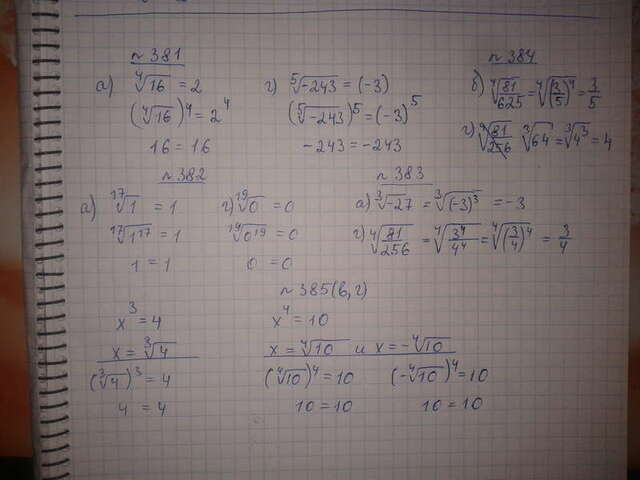 n 381
а) ⁴√16 = 2
(⁴√16)⁴ = 2⁴
16 = 16
г) ⁵√-243 = (-3)
(⁵√-243)⁵ = (-3)⁵
-243 = -243
n 384
б) ⁴√81/625 = ⁴√(3/5)⁴ = 3/5
г) ³√64 = ³√4³ = 4
n 382
а) ¹⁷√1 = 1
¹⁷√1¹⁷ = 1
1 = 1
г) ¹⁹√0 = 0
¹⁹√0¹⁹ = 0
0 = 0
n 383
а) ³√-27 = ³√(-3)³ = -3
г) ⁴√81/256 = ⁴√3⁴/4⁴ = ⁴√(3/4)⁴ = 3/4
n 385(в,г)
x³ = 4
x = ³√4
(³√4)³ = 4
4 = 4
x⁴ = 10
x = ⁴√10 и x = -⁴√10
(⁴√10)⁴ = 10
10 = 10
(-⁴√10)⁴ = 10
10 = 10